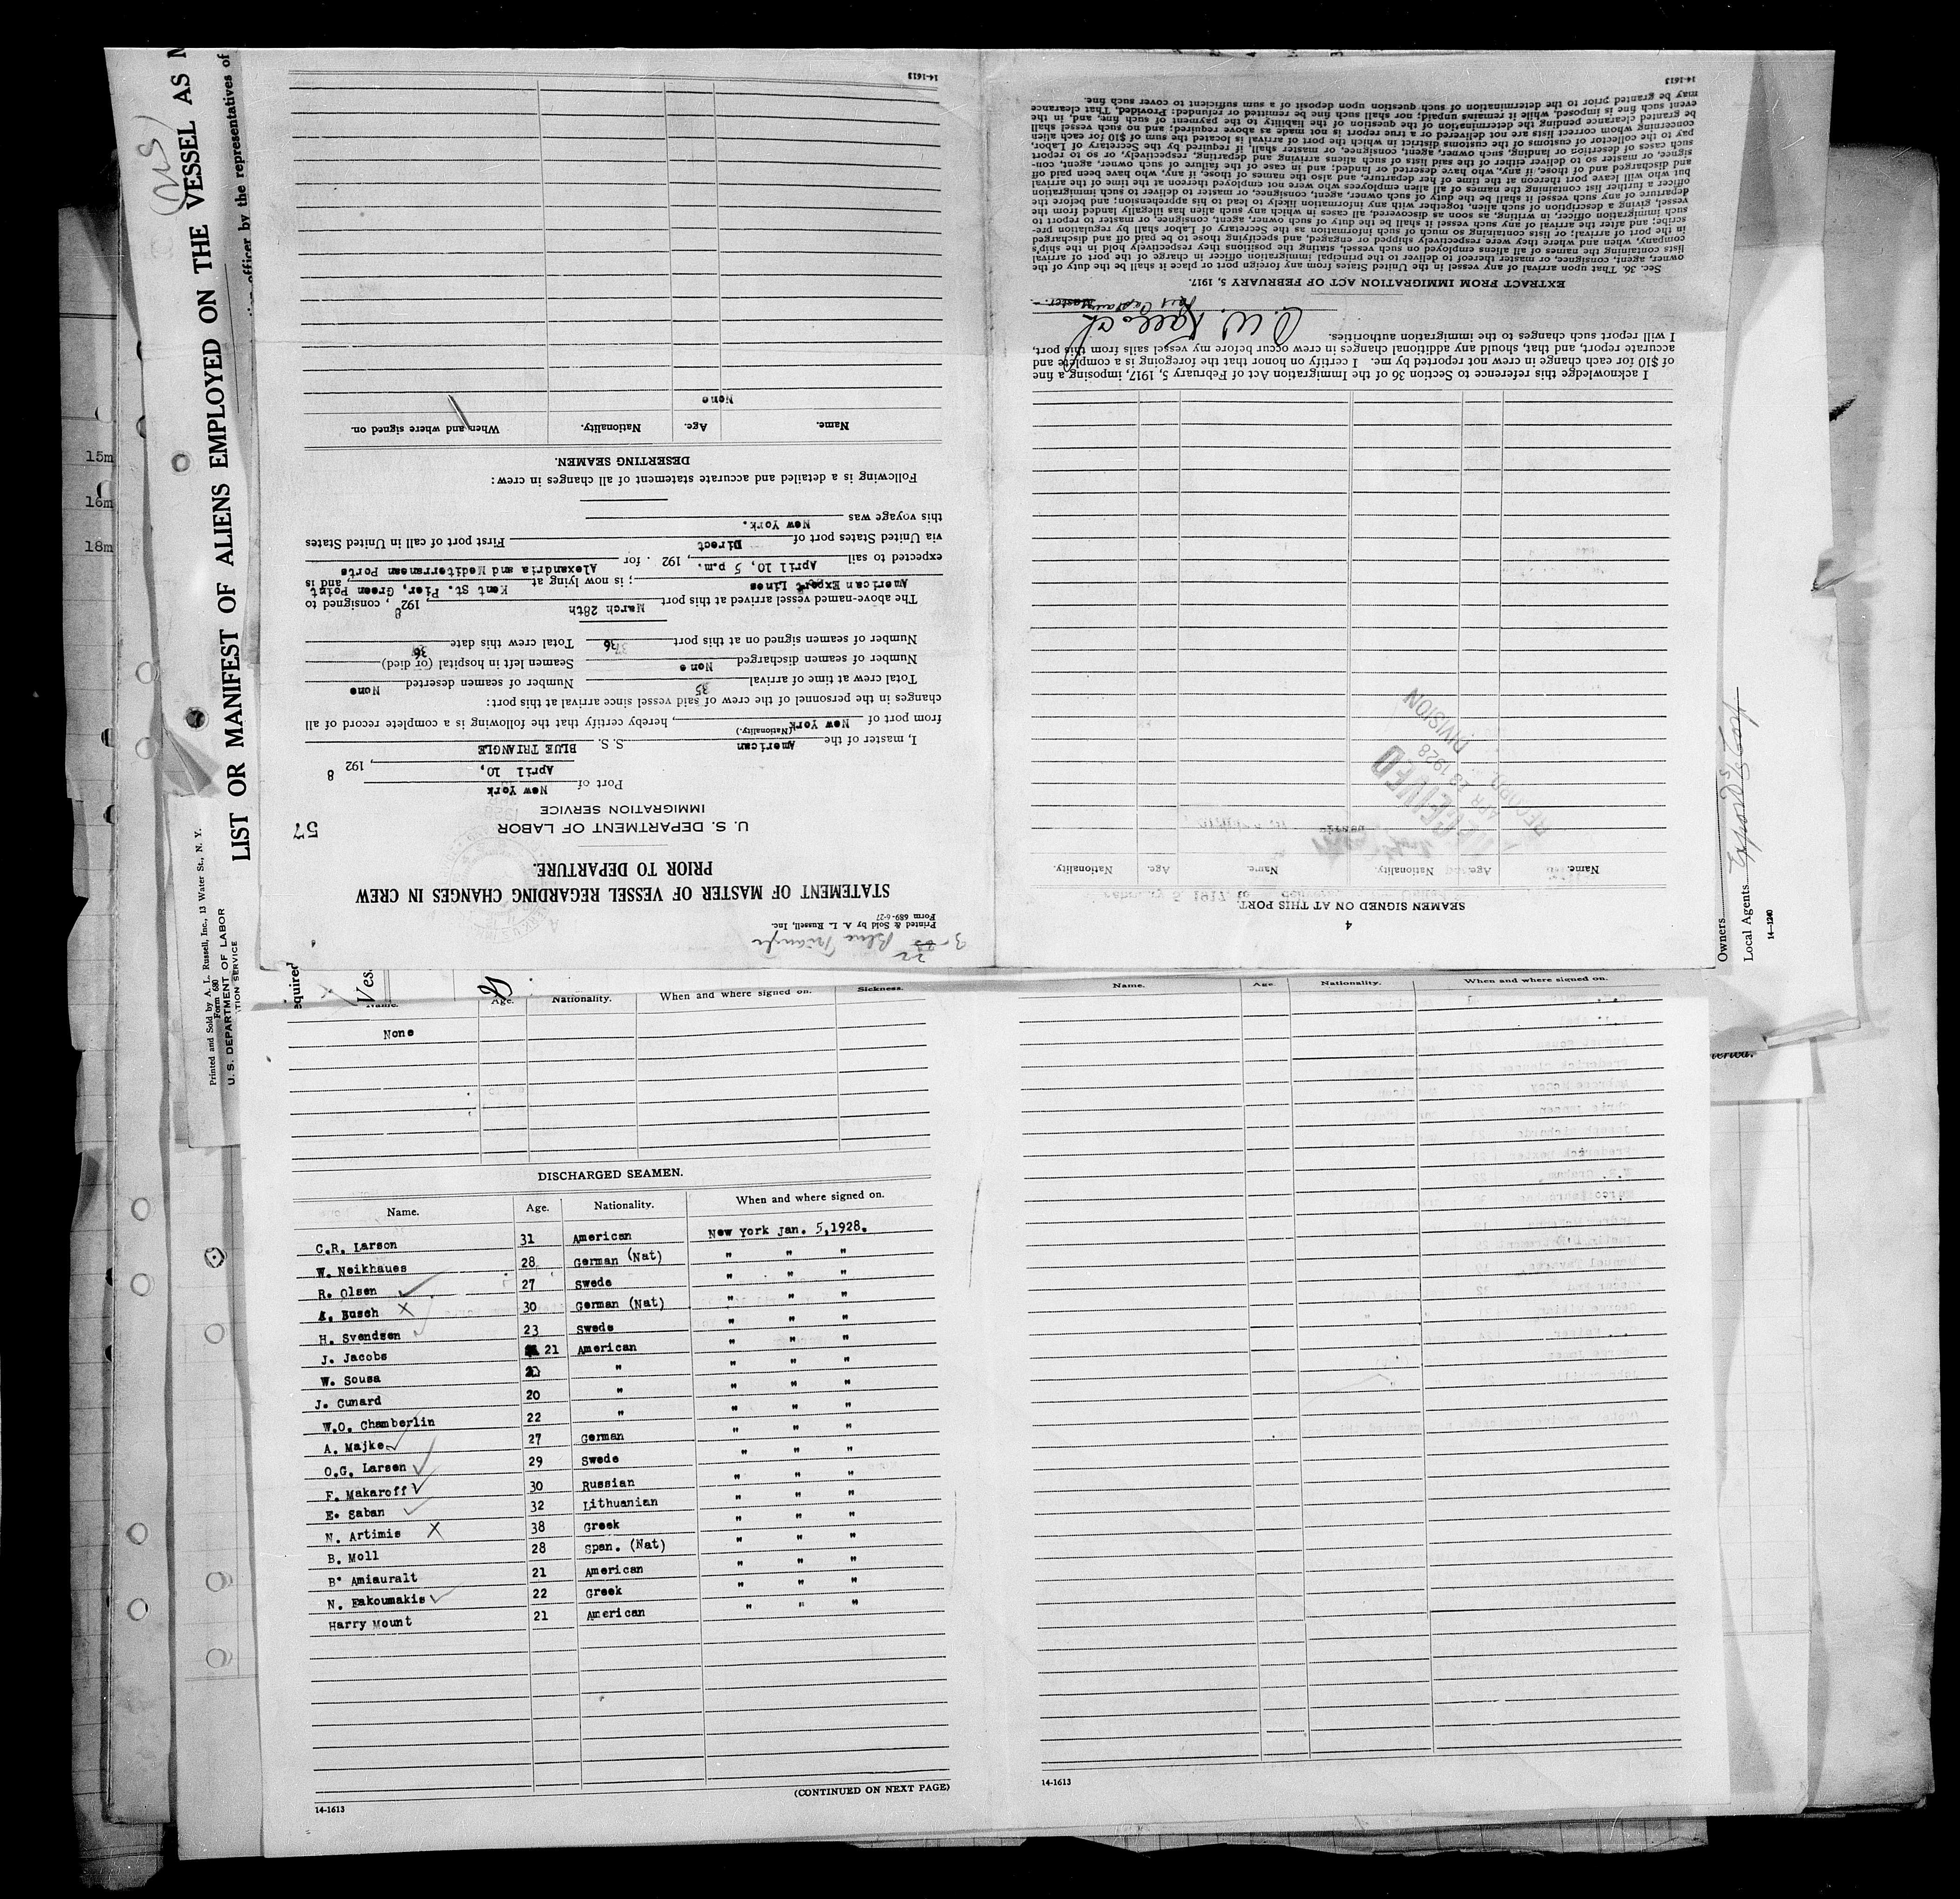 LIST OR MANIFEST OF ALIENS EMPLOYED ON THE VESSEL AS
officer by the representatives of
Printed and Sold by A. L. Russell, Inc., 13 Water St., N. Y.
Form 680
U. S. DEPARTMENT OF LABOR
15m
16m
18m
Printed & Sold by A. L. Russell, Inc.
Form 689-6-27
Blue Triangle
STATEMENT OF MASTER OF VESSEL REGARDING CHANGES IN CREW
PRIOR TO DEPARTURE.
U. S. DEPARTMENT OF LABOR
57
IMMIGRATION SERVICE
Port of New York
April 10, , 192 8
I, master of the American S. S. BLUE TRIANGLE
(Nationality.)
from port of New York, hereby certify that the following is a complete record of all
changes in the personnel of the crew of said vessel since arrival at this port:
Total crew at time of arrival 35 Number of seamen deserted None
Number of seamen discharged None Seamen left in hospital (or died)
Number of seamen signed on at this port 36 Total crew this date 36
The above-named vessel arrived at this port March 28th , 1928 , consigned to
American Export Lines ; is now lying at Kent St. Pier, Green Point , and is
expected to sail April 10, 5 p.m. , 192 . for Alexandria and Mediterranean Ports
via United States port of Direct First port of call in United States
this voyage was New York.
Following is a detailed and accurate statement of all changes in crew:
DESERTING SEAMEN.
Name. Age. Nationality. When and where signed on.
None
14-1613
4
SEAMEN SIGNED ON AT THIS PORT.
Name. Age. Nationality. Name. Age. Nationality.
RECEIVED
APR 13 1928
RECORD DIVISION
I acknowledge this reference to Section 36 of the Immigration Act of February 5, 1917, imposing a fine
of $10 for each change in crew not reported by me. I certify on honor that the foregoing is a complete and
accurate report, and that, should any additional changes in crew occur before my vessel sails from this port,
I will report such changes to the immigration authorities.
Master.
EXTRACT FROM IMMIGRATION ACT OF FEBRUARY 5, 1917.
Sec. 36. That upon arrival of any vessel in the United States from any foreign port or place it shall be the duty of the
owner, agent, consignee, or master thereof to deliver to the principal immigration officer in charge of the port of arrival
lists containing the names of all aliens employed on such vessel, stating the positions they respectively hold in the ship's
company, when and where they were respectively shipped or engaged, and specifying those to be paid off and discharged
in the port of arrival; or lists containing so much of such information as the Secretary of Labor shall by regulation pre-
scribe; and after the arrival of any such vessel it shall be the duty of such owner, agent, consignee, or master to report to
such immigration officer, in writing, as soon as discovered, all cases in which any such alien has illegally landed from the
vessel, giving a description of such alien, together with any information likely to lead to his apprehension; and before the
departure of any such vessel it shall be the duty of such owner, agent, consignee, or master to deliver to such immigration
officer a further list containing the names of all alien employees who were not employed thereon at the time of the arrival
but who will leave port thereon at the time of her departure, and also the names of those, if any, who have been paid off
and discharged and of those, if any, who have deserted or landed; and in case of the failure of such owner, agent, con-
signee, or master so to deliver either of the said lists of such aliens arriving and departing, respectively, or so to report
such cases of desertion or landing, such owner, agent, consignee, or master shall, if required by the Secretary of Labor,
pay to the collector of customs of the customs district in which the port of arrival is located the sum of $10 for each alien
concerning whom correct lists are not delivered or a true report is not made as above required; and no such vessel shall
be granted clearance pending the determination of the question of the liability to the payment of such fine, and, in the
event such fine is imposed, while it remains unpaid; nor shall such fine be remitted or refunded: Provided, That clearance
may be granted prior to the determination of such question upon deposit of a sum sufficient to cover such fine.
14-1613
Owners
Local Agents
14-1240
Name. Age. Nationality. When and where signed on. Sickness.
None
DISCHARGED SEAMEN.
Name. Age. Nationality. When and where signed on.
C.R. Larson 31 American New York Jan. 5,1928.
W. Neikhaues 28 German (Nat) " " "
R. Olsen 27 Swede " " "
Busch X 30 German (Nat) " " "
H. Svendsen 23 Swede " " "
J. Jacobs 21 American " " "
W. Sousa " " " "
J. Cunard 20 " " " "
W.O. Chamberlin 22 " " " "
A. Majke 27 German " " "
O.G. Larsen 29 Swede " " "
F. Makaroff 30 Russian " " "
E. Saban 32 Lithuanian " " "
N. Artimis X 38 Greek " " "
B. Moll 28 Span. (Nat) " " "
B. Amiauralt 21 American " " "
N. Fakoumakis 22 Greek " " "
Harry Mount 21 American " " "
(CONTINUED ON NEXT PAGE)
14-1613
Name. Age Nationality. When and where signed on.
14-1613